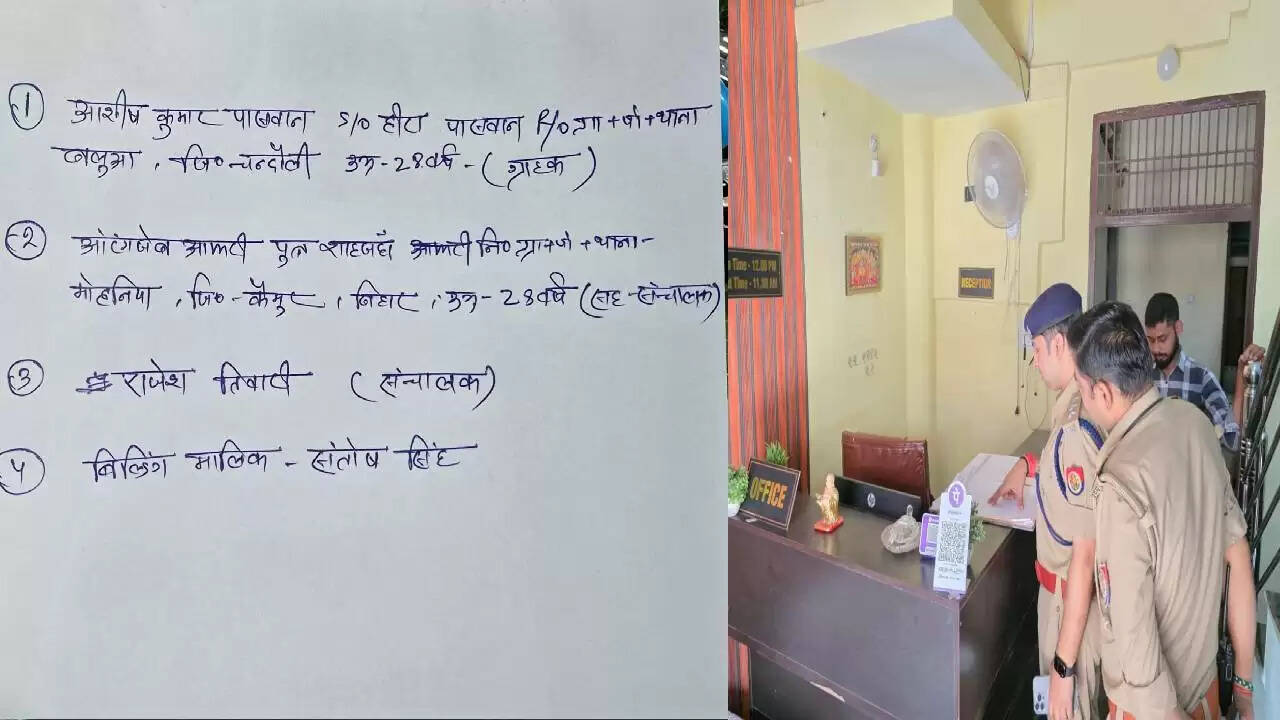 1 आशीष कुमार पासवान S/O हीरा पासवान R/O ग्रा+पो+थाना
बलुआ, जि०-चन्दौली उम्र-28 वर्ष-(ग्राहक)
2 औरंगजेब आलम पुत्र शाहजहाँ नि० ग्रा+पो+थाना-
मोहनिया, जि०-कैमूर, बिहार, उम्र-28 वर्ष (सह-संचालक)
3 राजेश तिवारी (संचालक)
4 बिल्डिंग मालिक-संतोष सिंह
Time - 12.00 PM
Time - 11.00 AM
RECEPTION
OFFICE
hp
पे